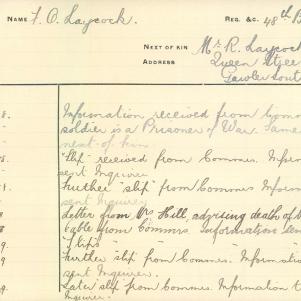 NAME F. O. Laycock. REG. &C. 48th B
NEXT OF KIN Mr R. Laycock
ADDRESS Queen Stree
Gawler Sout
8. Information received from Comm
soldier is a Prisoner of War. Same
next of kin
"Slip" received from Commrs. Inform
sent Inquirer
8 Further "slip" from Commrs Inform
sent Inquirer
8 Letter from Mrs Hill, advising death of
8 Cable from Commrs. Information sen
9 "Slips"
9. Further "slip" from Commrs. Information
sent Inquirer.
9. Later slip from Commrs. Information
Inquirer.